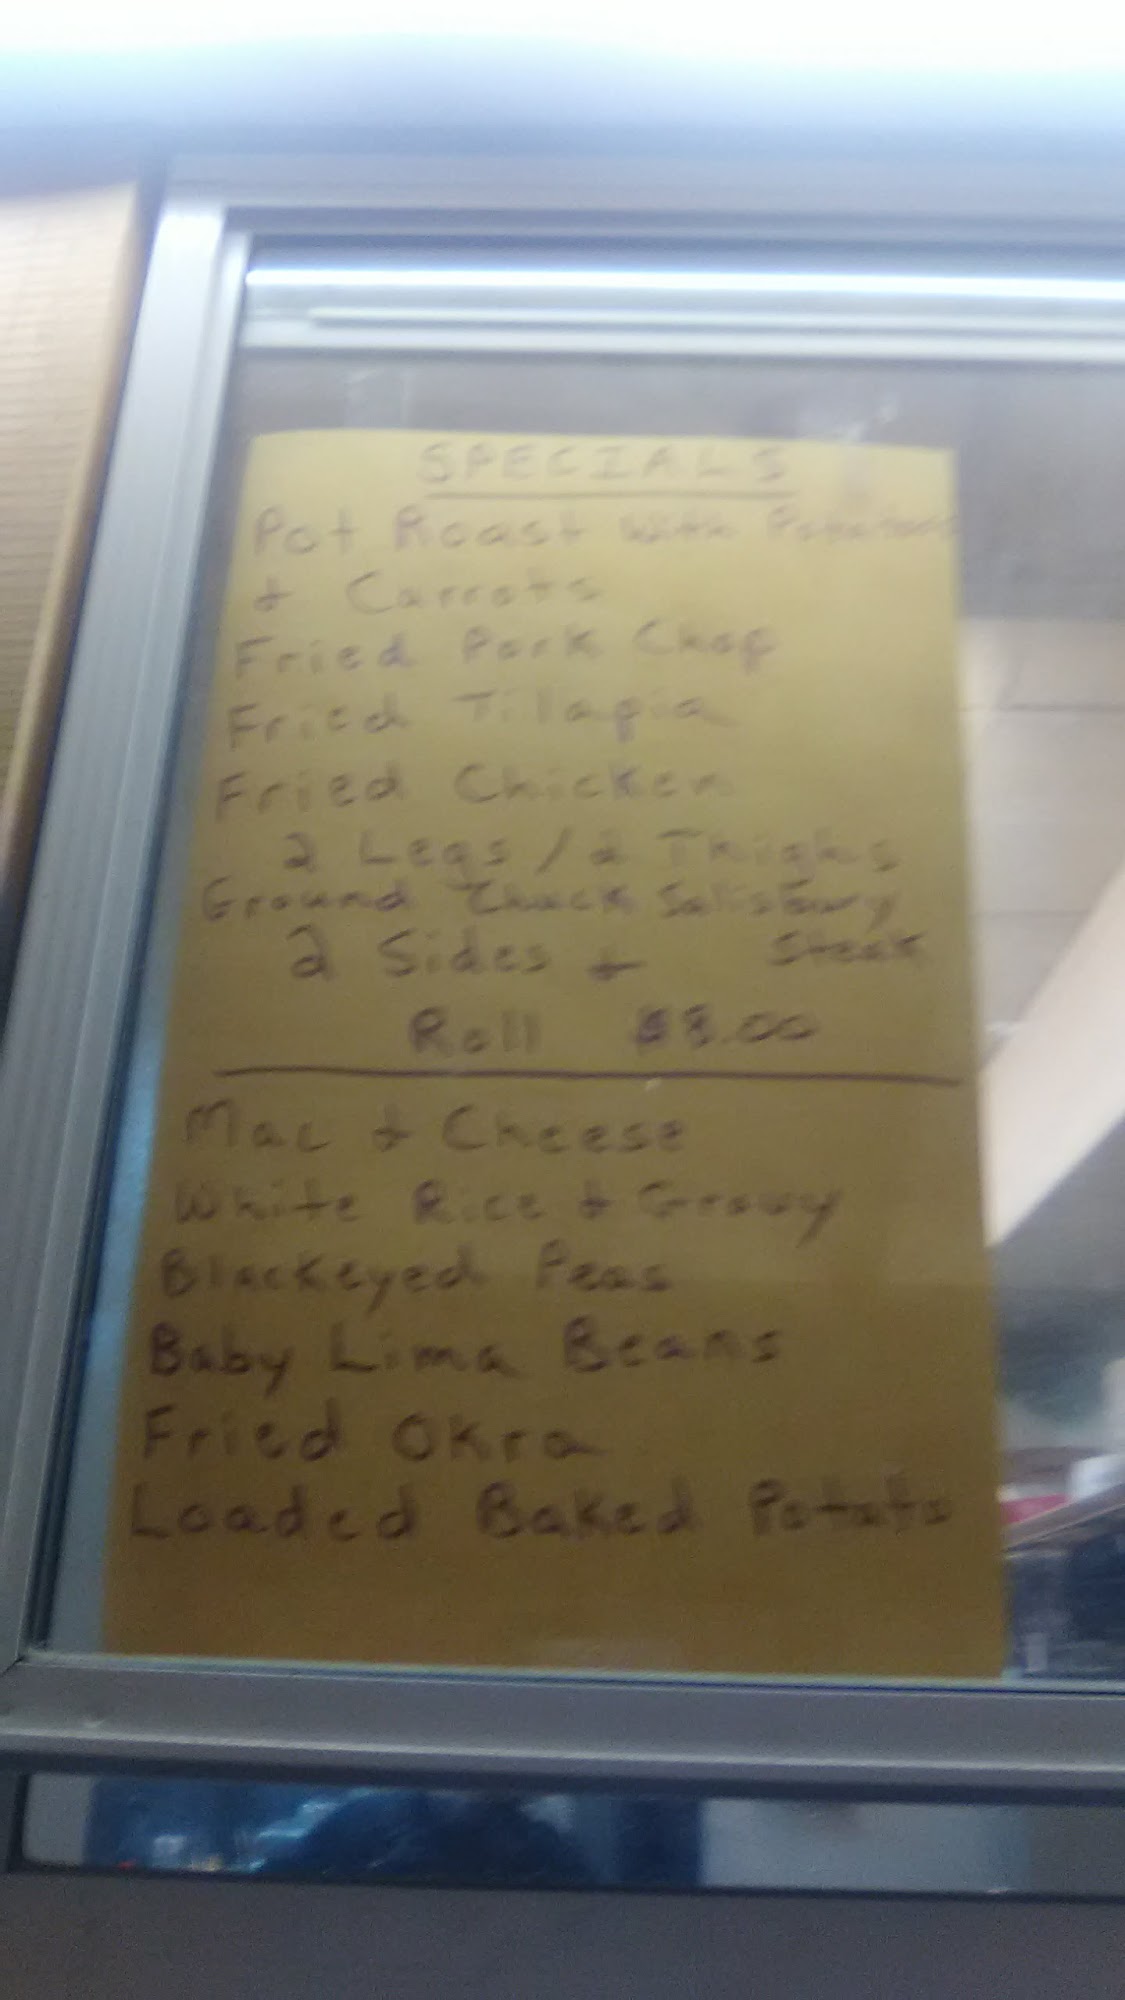 SPECIALS
Pot Roast with Potatoes
& Carrots
Fried Pork Chop
Fried Tillapia
Fried Chicken
2 Legs / 2 Thighs
Ground Chuck Salisbury
2 Sides + Steak
Roll $8.00
Mac & Cheese
White Rice & Gravy
Blackeyed Peas
Baby Lima Beans
Fried Okra
Loaded Baked Potato